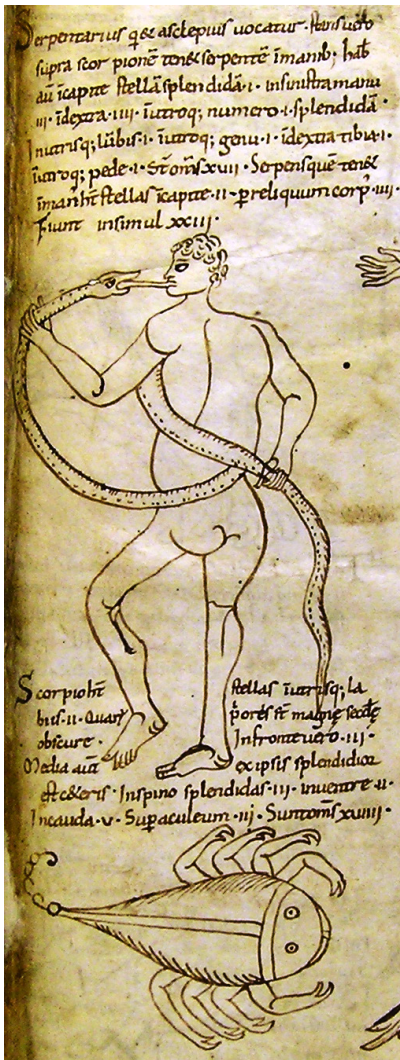 Serpentarius q& asclepius vocatur. stans uero
supra scorpionē ten& serpentē īmanib; hab&
aū īcapite stellā splendidā · i · insinistra manu
iii · īdextra · iiii · īutroq; numero · i · splendidā ·
Inutrisq; lūbis · i · īutroq; genu · i · īdextra tibia · i ·
īutroq; pede · i · St oms xvii · Serpens quē ten&
īmanib; stellas īcapite · ii · p reliquum corp' · iiii ·
Fiunt insimul xxiii ·
Scorpio ht stellas īutrisq; la
biis · ii · Quarū priores st magnę secdę
obscure · Infronte uero · iii ·
Media aut ex ipsis splendidior
est c&eris · Inspino splendidas · iii · inuentre · ii ·
Incauda · v · Sup aculeum · iii · Sunt oms xviiii ·